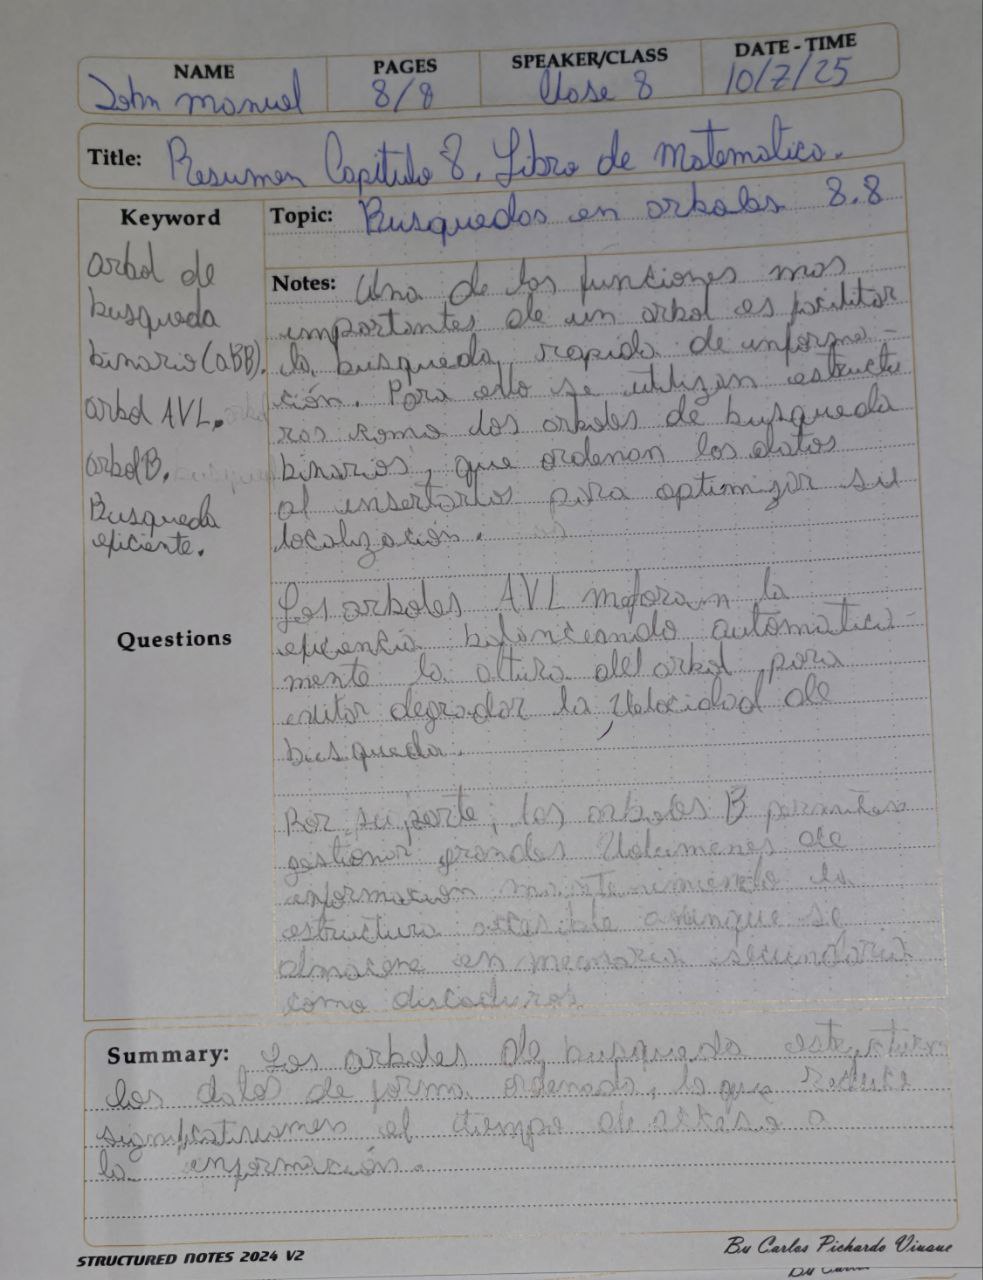 NAME PAGES SPEAKER/CLASS DATE - TIME
John manuel 8/8 Clase 8 10/7/25
Title: Resumen Capitulo 8. Libro de matematica.
Keyword
arbol de
busqueda
binario (aBB).
arbol AVL.
arbol B.
Busqueda
eficiente.
Questions
Topic: Busquedas en arboles 8.8
Notes: Una de las funciones mas
importantes de un arbol es facilitar
la busqueda rapida de informa-
ción. Para ello se utilizan estructu
ras como los arboles de busqueda
binarios, que ordenan los datos
al insertarlos para optimizar su
localización.
Los arboles AVL mejoran la
eficiencia balanceando automatica-
mente la altura del arbol para
evitar degradar la velocidad de
busqueda.
Por su parte, los arboles B permiten
gestionar grandes volumenes de
informacion manteniendo la
estructura accesible aunque se
almacene en memoria secundaria
como discoduros
Summary: Los arboles de busqueda
los datos de forma ordenada, lo que reduce
el tiempo de acceso a
la información.
STRUCTURED NOTES 2024 V2
By Carlos Pichardo Viuque